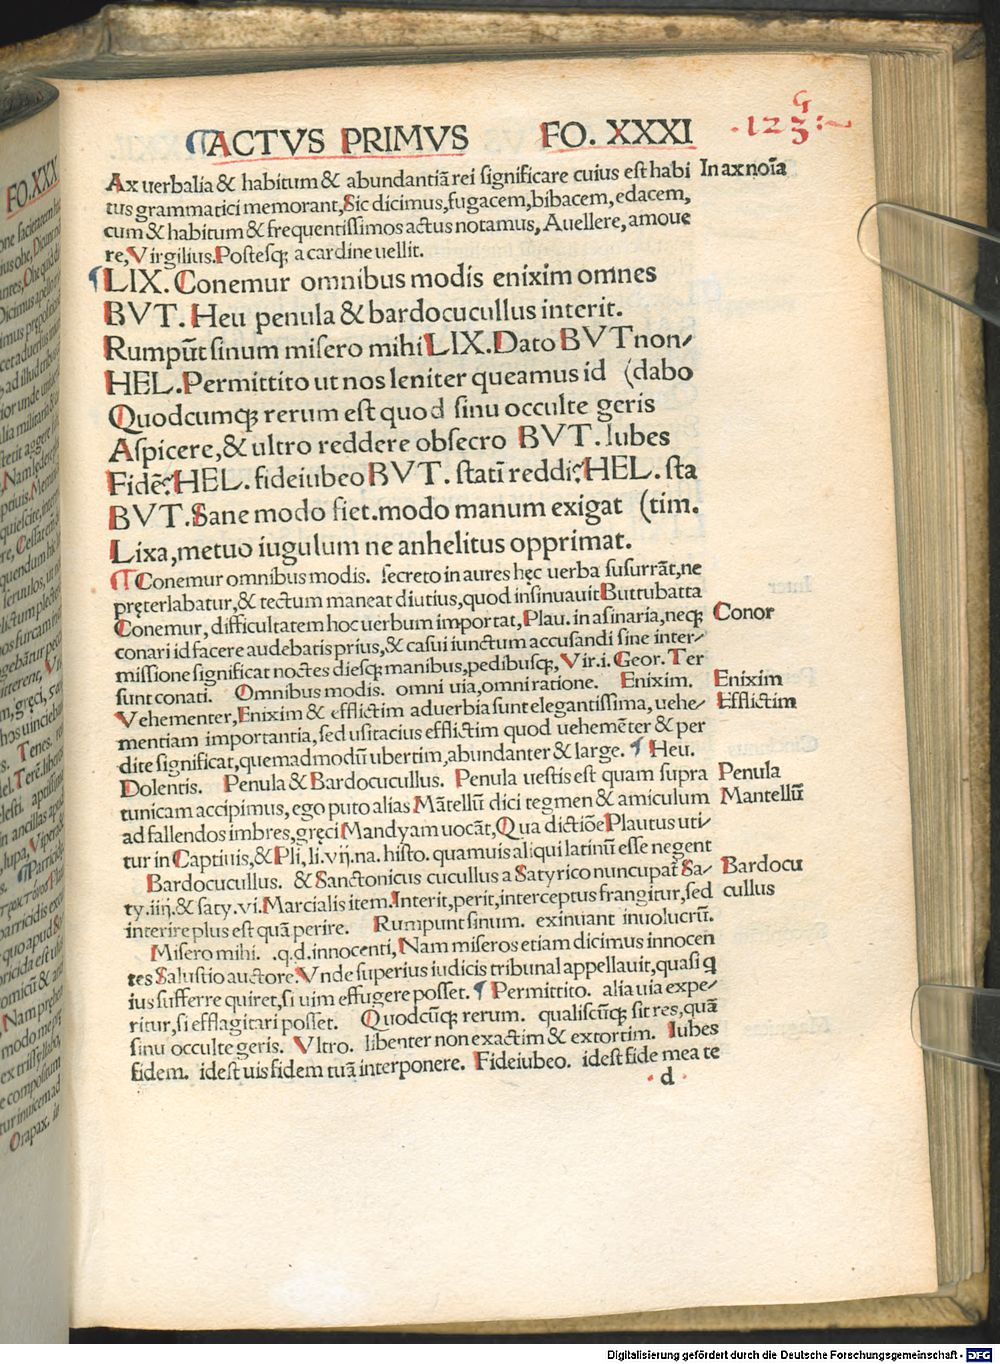 ¶ACTVS PRIMVS FO. XXXI
.123:~
Ax uerbalia & habitum & abundantiā rei significare cuius est habi In ax noīa
tus grammatici memorant, Sic dicimus, fugacem, bibacem, edacem,
cum & habitum & frequentissimos actus notamus, Auellere, amoue
re, Virgilius. Postesqꝫ a cardine uellit.
¶LIX. Conemur omnibus modis enixim omnes
BVT. Heu penula & bardocucullus interit.
Rumpūt sinum misero mihi LIX. Dato BVT non/
HEL. Permittito ut nos leniter queamus id (dabo
Quodcumqꝫ rerum est quod sinu occulte geris
Aspicere, & ultro reddere obsecro BVT. Iubes
Fidē? HEL. fideiubeo BVT. statī reddi? HEL. sta
BVT. Sane modo fiet. modo manum exigat (tim.
Lixa, metuo iugulum ne anhelitus opprimat.
¶Conemur omnibus modis. secreto in aures hęc uerba susurrāt, ne
pręterlabatur, & tectum maneat diutius, quod insinuauit Buttubatta
Conemur, difficultatem hoc uerbum importat, Plau. in asinaria, neqꝫ Conor
conari id facere audebatis prius, & casui iunctum accusandi sine inter/
missione significat noctes diesqꝫ manibus, pedibusqꝫ, Vir. i. Geor. Ter
sunt conati. Omnibus modis. omni uia, omni ratione. Enixim. Enixim
Vehementer, Enixim & efflictim aduerbia sunt elegantissima, uehe/ Efflictim
mentiam importantia, sed usitacius efflictim quod uehemēter & per
dite significat, quemadmodū ubertim, abundanter & large. ¶ Heu.
Dolentis. Penula & Bardocucullus. Penula uestis est quam supra Penula
tunicam accipimus, ego puto alias Mātellū dici tegmen & amiculum Mantellū
ad fallendos imbres, gręci Mandyam uocāt, Qua dictiōe Plautus uti/
tur in Captiuis, & Pli, li. vij. na. histo. quamuis aliqui latinū esse negent
Bardocucullus. & Sanctonicus cucullus a Satyrico nuncupat̄ Sa/ Bardocu
ty. iiij. & saty. vi. Marcialis item. Interit, perit, interceptus frangitur, sed cullus
interire plus est quā perire. Rumpunt sinum. exinuant inuolucrū.
Misero mihi. .q.d. innocenti, Nam miseros etiam dicimus innocen
tes Salustio auctore. Vnde superius iudicis tribunal appellauit, quasi q
ius sufferre quiret, si uim effugere posset. ¶ Permittito. alia uia expe/
ritur, si efflagitari posset. Quodcūqꝫ rerum. qualiscūqꝫ sit res, quā
sinu occulte geris. Vltro. libenter non exactim & extortim. Iubes
fidem. idest uis fidem tuā interponere. Fideiubeo. idest fide mea te
. d .
Digitalisierung gefördert durch die Deutsche Forschungsgemeinschaft - DFG